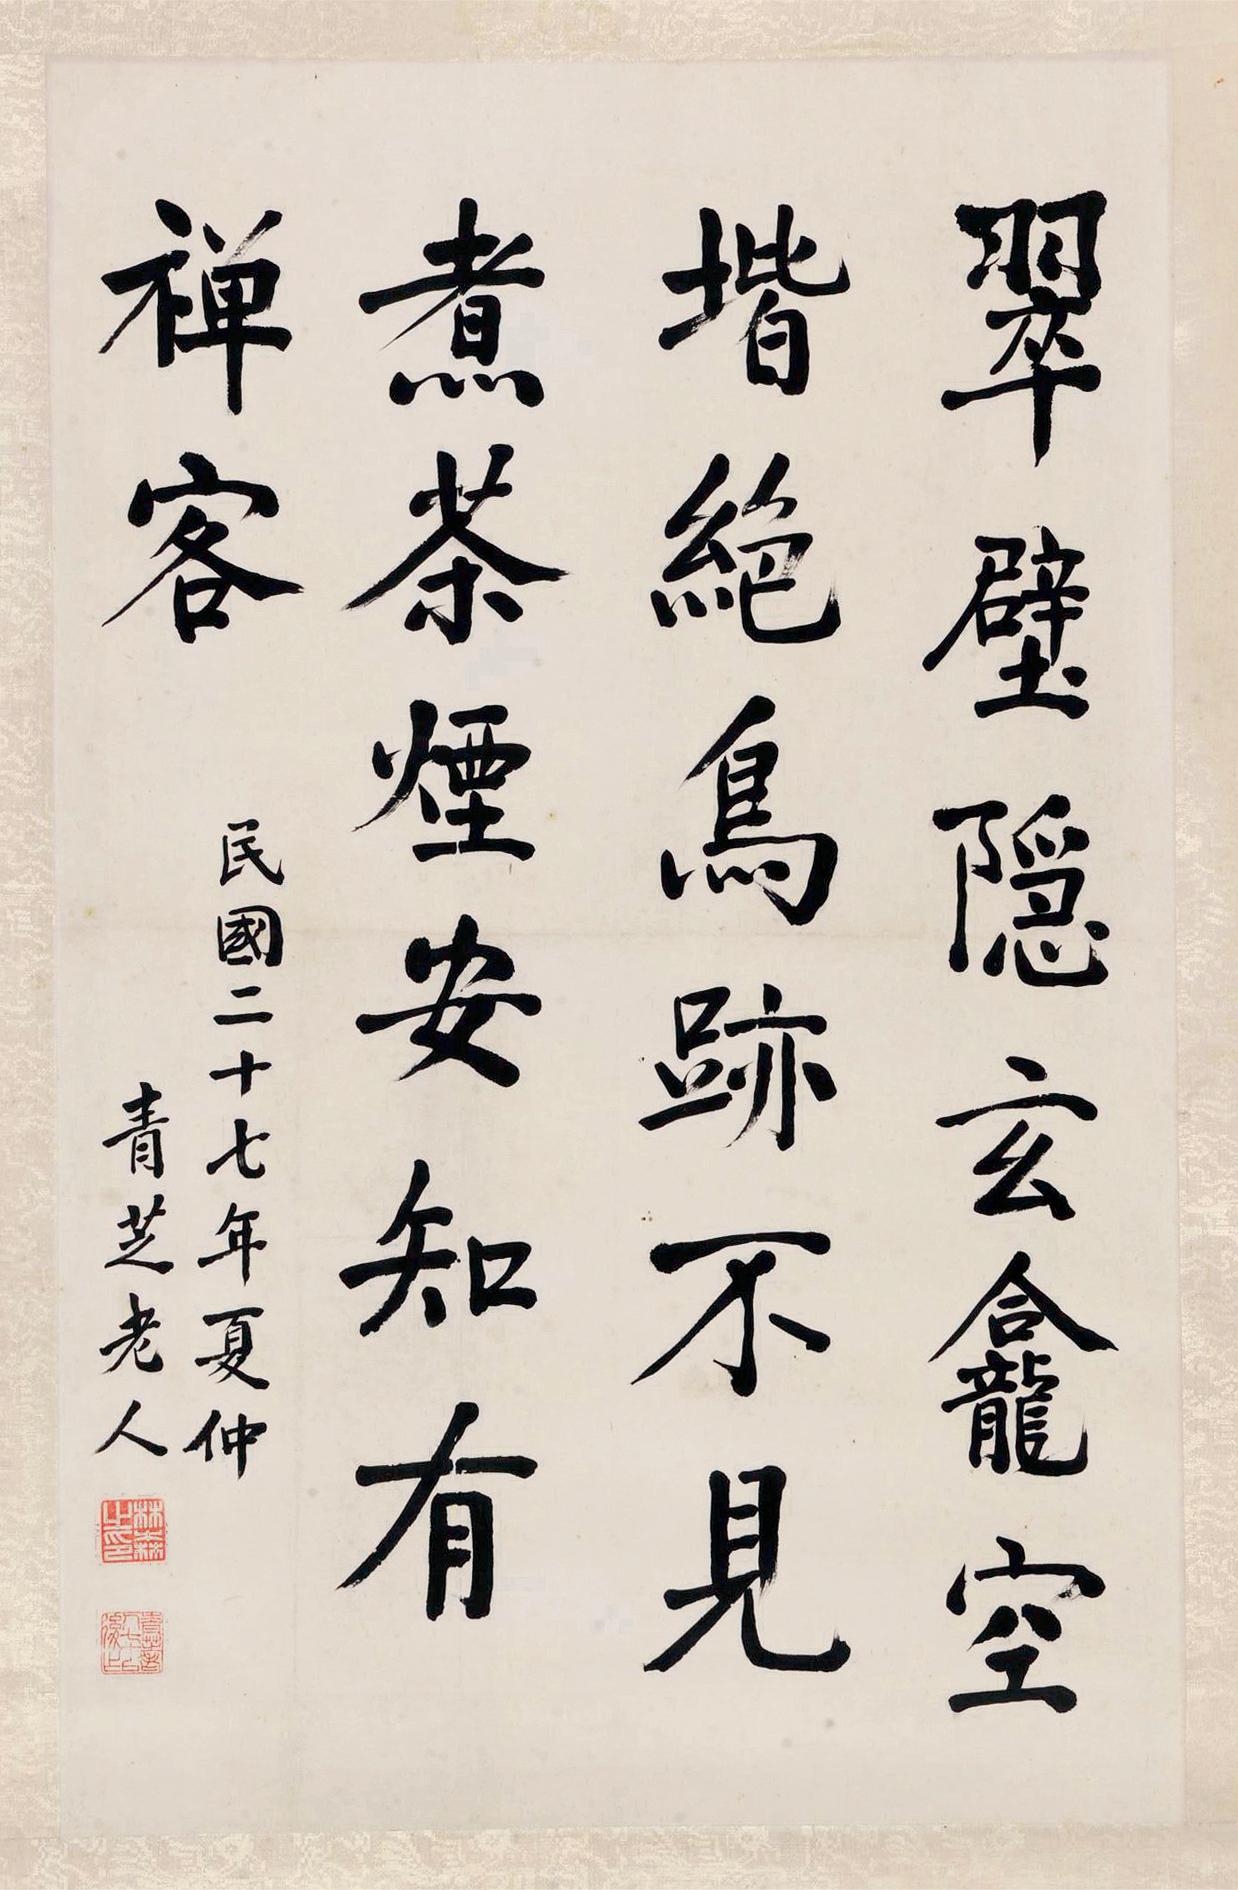 翠壁隱玄龕空
堦絶鳥跡不見
煮茶煙安知有
禅客
民國二十七年夏仲
青芝老人
林森之印